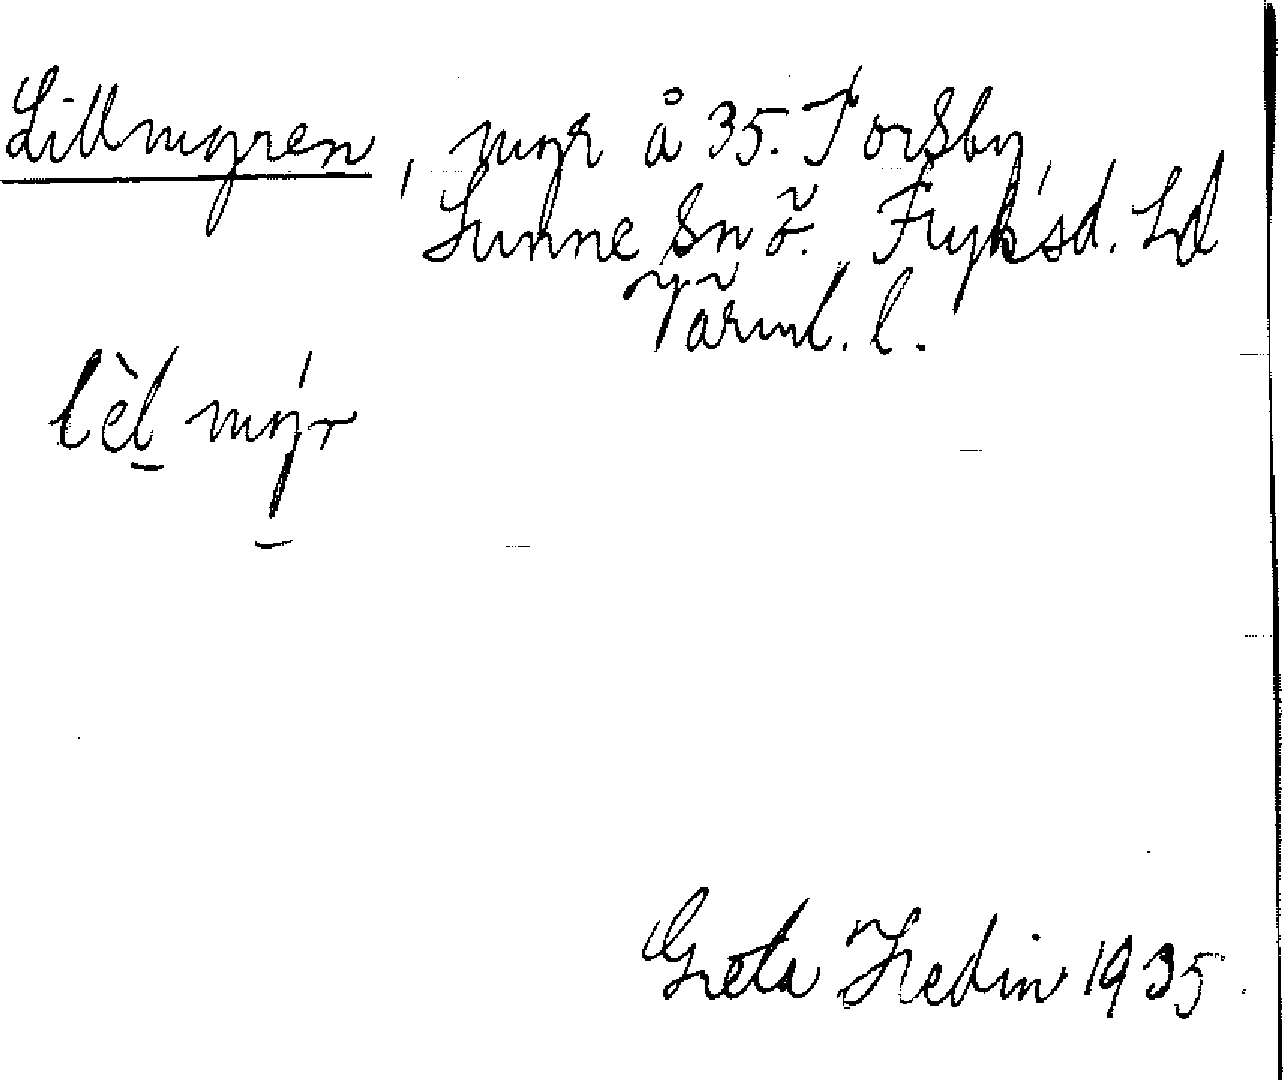 Lillmyren, myr å 35. Torsby,
Sunne sn ö. Fryksd. hd
Värml. l.
lèl mýr
Greta Hedin 1935.